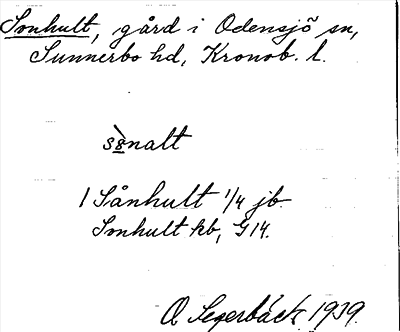 Sonhult, gård i Odensjö sn,
Sunnerbo hd, Kronob. l.
sònalt
1 Sånhult 1/4 jb
Sonhult kb, G14.
A Segerbäck 1939.